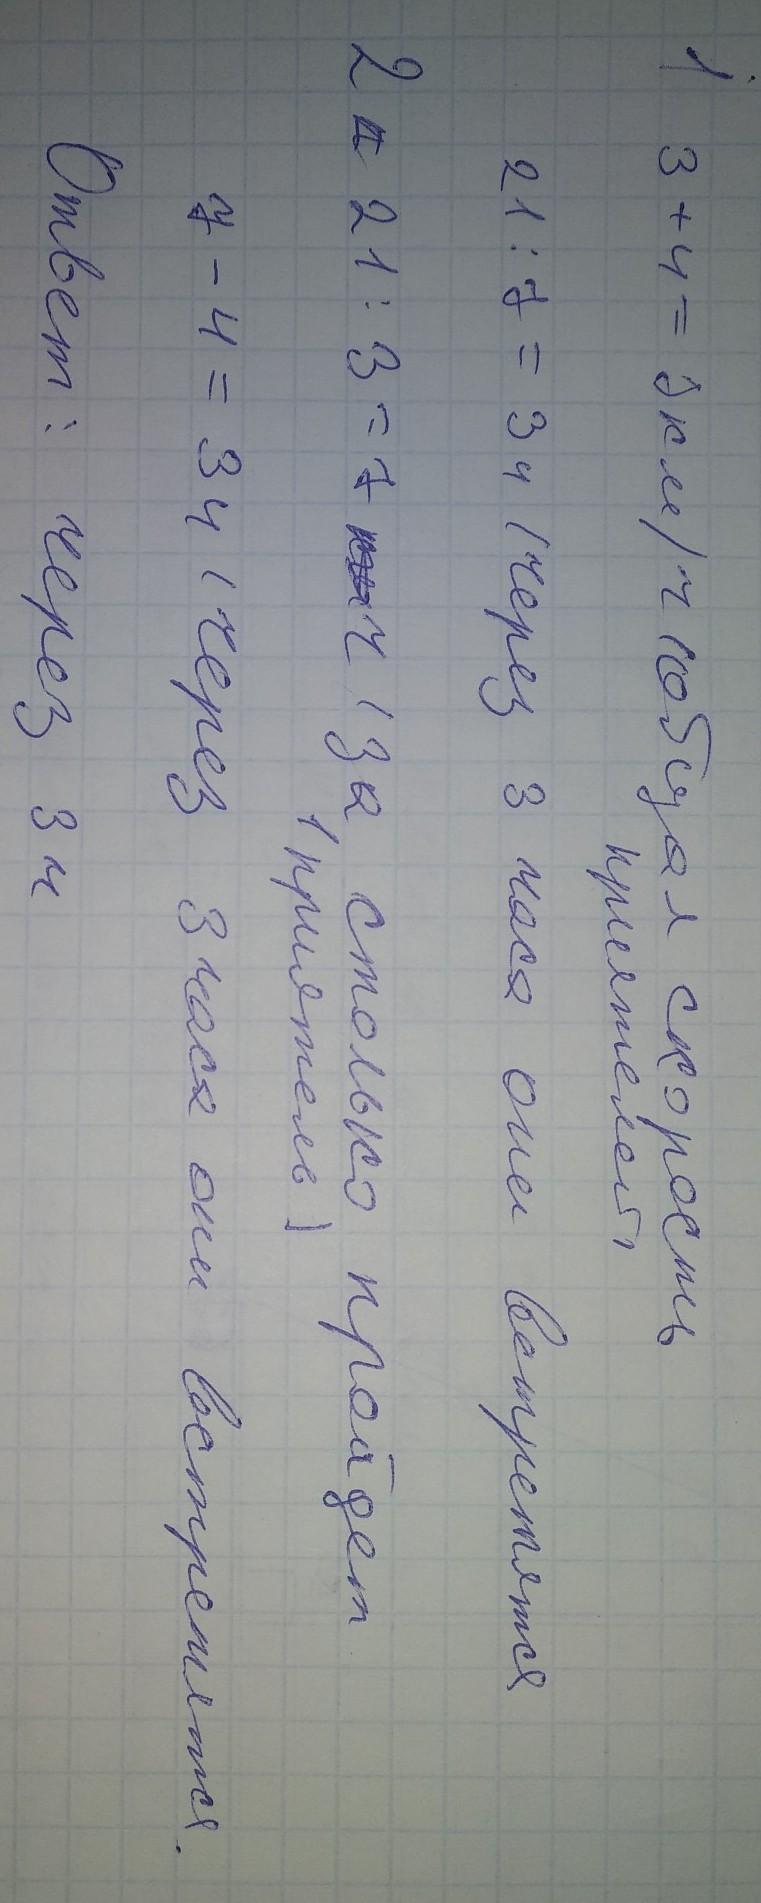 1 3+4=7км/ч (общая скорость
приятелей)
21:7=3ч (через 3 часа они встретятся
2 21:3=7 ч (за столько пройдет
1 приятель)
7-4=3ч (через 3 часа они встретятся.
Ответ: через 3ч